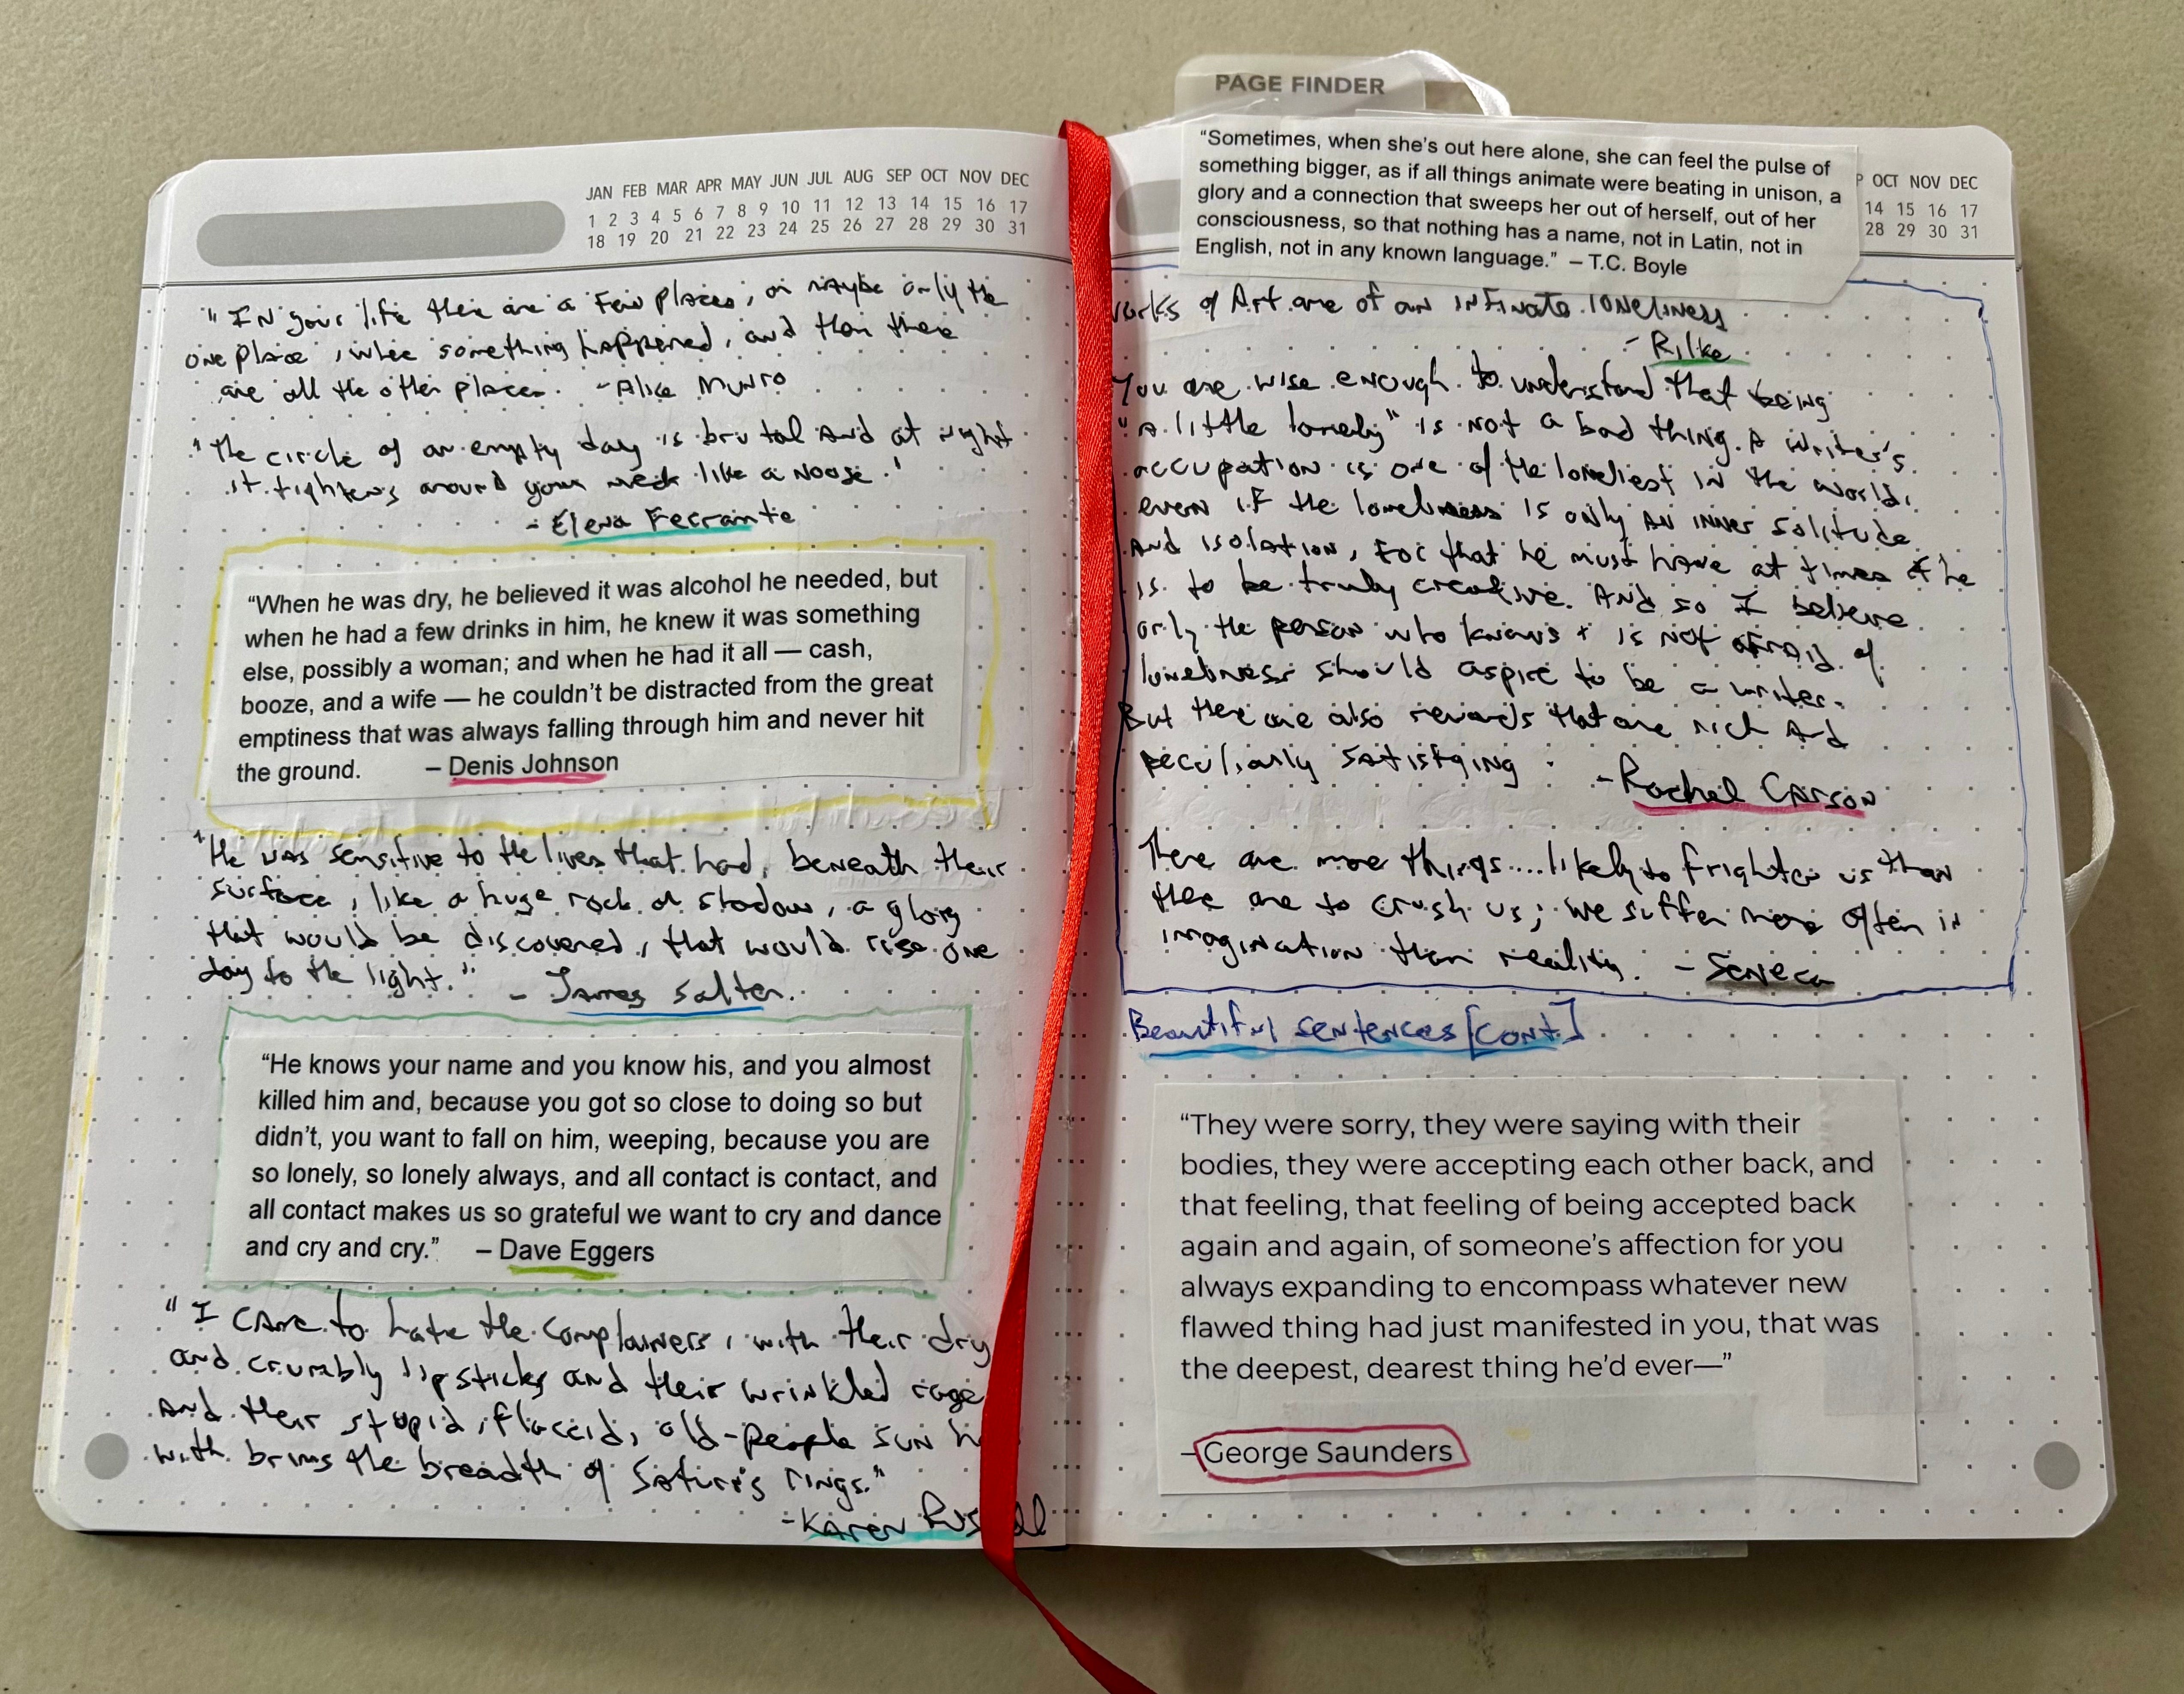 PAGE FINDER
JAN FEB MAR APR MAY JUN JUL AUG SEP OCT NOV DEC
1 2 3 4 5 6 7 8 9 10 11 12 13 14 15 16 17
18 19 20 21 22 23 24 25 26 27 28 29 30 31
"IN your life there are a few places, or maybe only the
one place, where something happened, and then there
are all the other places. - Alice Munro
"The circle of an empty day is brutal and at night
it tightens around your neck like a noose."
- Elena Ferrante
“When he was dry, he believed it was alcohol he needed, but
when he had a few drinks in him, he knew it was something
else, possibly a woman; and when he had it all — cash,
booze, and a wife — he couldn’t be distracted from the great
emptiness that was always falling through him and never hit
the ground. – Denis Johnson
"He was sensitive to the lives that had, beneath their
surface, like a huge rock or shadow, a glory
that would be discovered, that would rise one
day to the light." - James Salter.
“He knows your name and you know his, and you almost
killed him and, because you got so close to doing so but
didn’t, you want to fall on him, weeping, because you are
so lonely, so lonely always, and all contact is contact, and
all contact makes us so grateful we want to cry and dance
and cry and cry.” – Dave Eggers
"I came to hate the complainers, with their dry
and crumbly lipsticks and their wrinkled rage
and their stupid, flaccid, old-people sun
with brims the breadth of Saturn's rings."
- Karen
“Sometimes, when she’s out here alone, she can feel the pulse of
something bigger, as if all things animate were beating in unison, a
glory and a connection that sweeps her out of herself, out of her
consciousness, so that nothing has a name, not in Latin, not in
English, not in any known language.” – T.C. Boyle
P OCT NOV DEC
14 15 16 17
28 29 30 31
works of Art are of an infinate loneliness
- Rilke
You are wise enough to understand that being
"a little lonely" is not a bad thing. A writer's
occupation is one of the loneliest in the world,
even if the loneliness is only an inner solitude
and isolation, for that he must have at times if he
is to be truly creative. And so I believe
only the person who knows + is not afraid of
loneliness should aspire to be a writer.
But there are also rewards that are rich and
peculiarly satisfying. - Rachel Carson
There are more things....likely to frighten us than
there are to crush us; we suffer more often in
imagination than reality. - Seneca
Beautiful sentences [cont.]
“They were sorry, they were saying with their
bodies, they were accepting each other back, and
that feeling, that feeling of being accepted back
again and again, of someone’s affection for you
always expanding to encompass whatever new
flawed thing had just manifested in you, that was
the deepest, dearest thing he’d ever—”
–George Saunders